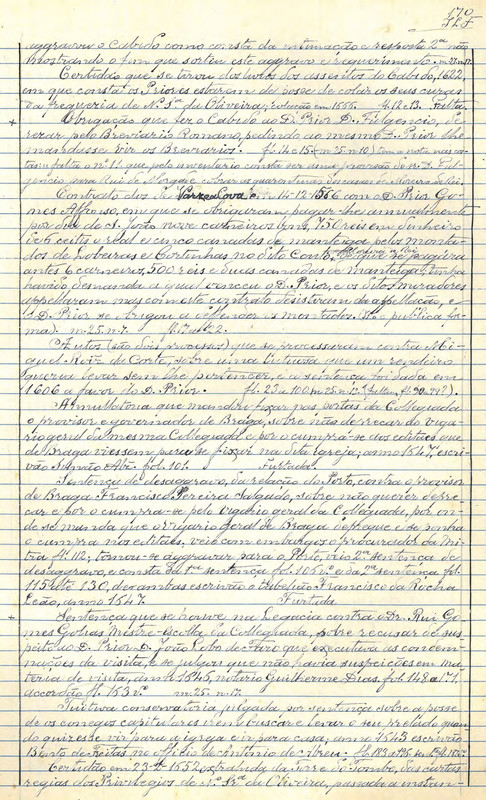 170
aggravou o Cabido como consta da intimação e resposta 2ª não
mostrando o fim que sortiu este aggravo e requerimento. m. 27. n. 17.
Certidão que se tirou dos livros dos assentos do Cabido, 1622,
em que consta os Priores estarem de posse de colar os seus curas
na freguezia de N. Srª da Oliveira; é cópia em 1655. fl. 12 e 13. Falta.
Obrigação que fez o Cabido ao D. Prior D. Fulgencio, de
rezar pelo Breviario Romano, pedindo ao mesmo D. Prior lhe
mandasse vir os Breviarios. fl. 14 e 15. (m. 25. n. 10) Com a nota nas cos-
tas e falta o nº 11 que pelo inventario consta ser uma provisão de D. Ful-
gencio para Rui de
Contrato dos de Parada e Cova em 14-12-1556 com o D. Prior Go-
mes Affonso, em que se obrigaram pagar-lhe annualmente
por dia de S. João nove carneiros bons, 750 reis em dinheiro
de 6 ceitis o real e cinco canadas de manteiga pelos monta-
dos de Lobeiras e Cortinhas no dito Conto, porque se pagava
antes 6 carneiros, 500 reis e duas canadas de manteiga. Tinha
havido demanda a qual venceu o D. Prior, e os ditos moradores
appellaram mas com este contrato desistiram da appellação, e
o D. Prior se obrigou a defender os montados. (É publica for-
ma). m. 25. n. 7. fl. 17 a 22.
Autos (são dois processos) que se processaram contra Mi-
guel Roiz de Corte, sobre uma lutuosa que um rendeiro
queria levar sem lhe pertencer, e a sentença foi dada em
1606 a favor do D. Prior. fl. 23 a 100
Annullatoria que mandou fixar nas portas da Collegiada
o provisor e governador de Braga, sobre não deprecar do viga-
rio geral da mesma Collegiada e por o cumpra-se aos editaes que
de Braga viessem para se fixar na dita Igreja; anno 1547, escri-
vão Simão Abr. fol. 101. Furtada.
Sentença de desaggravo, da relação do Porto, contra o provisor
de Braga Francisco Pereira Salgado, sobre não querer depre-
car e por o cumpra-se pelo vigario geral da Collegiada, por on-
de se manda que o vigario geral de Braga depreque e se ponha
o cumpra nos editaes, veio com embargos o procurador da Mi-
tra fl. 112; tornou-se aggravar para o Porto, veio 2ª sentença de
desaggravo, e consta da 1ª sentença fol. 105 vº e da 2ª sentença fol.
115 até 130, de ambas escrivão o tabellião Francisco da Rocha
Leão, anno 1547. Furtada
Sentença que se houve na Legacia contra o Dr. Rui Go-
mes Golias Mestre-escolla da Collegiada, sobre recusar de sus-
peito ao D. Prior D. João Lobo de Faro que executava as condem-
nações da visita, e se julgou que não havia suspeições em ma-
teria de visita, anno 1645, notario Guilherme Dias. fol. 148 a 171.
accordão fl. 153 vº. m. 25. n. 17.
Tuitiva conservatoria julgada por sentença sobre a posse
de os conegos capitulares irem buscar e levar o seu prelado quan-
do quizesse vir para a igreja e ir para casa; anno 1543 escrivão
Bento de Freitas, no officio de Antonio de Abreu.
Certidão em 23-2-1552 extrahida da Torre do Tombo, das cartas
regias dos Privilegios de N. Srª da Oliveira, passada a instan-